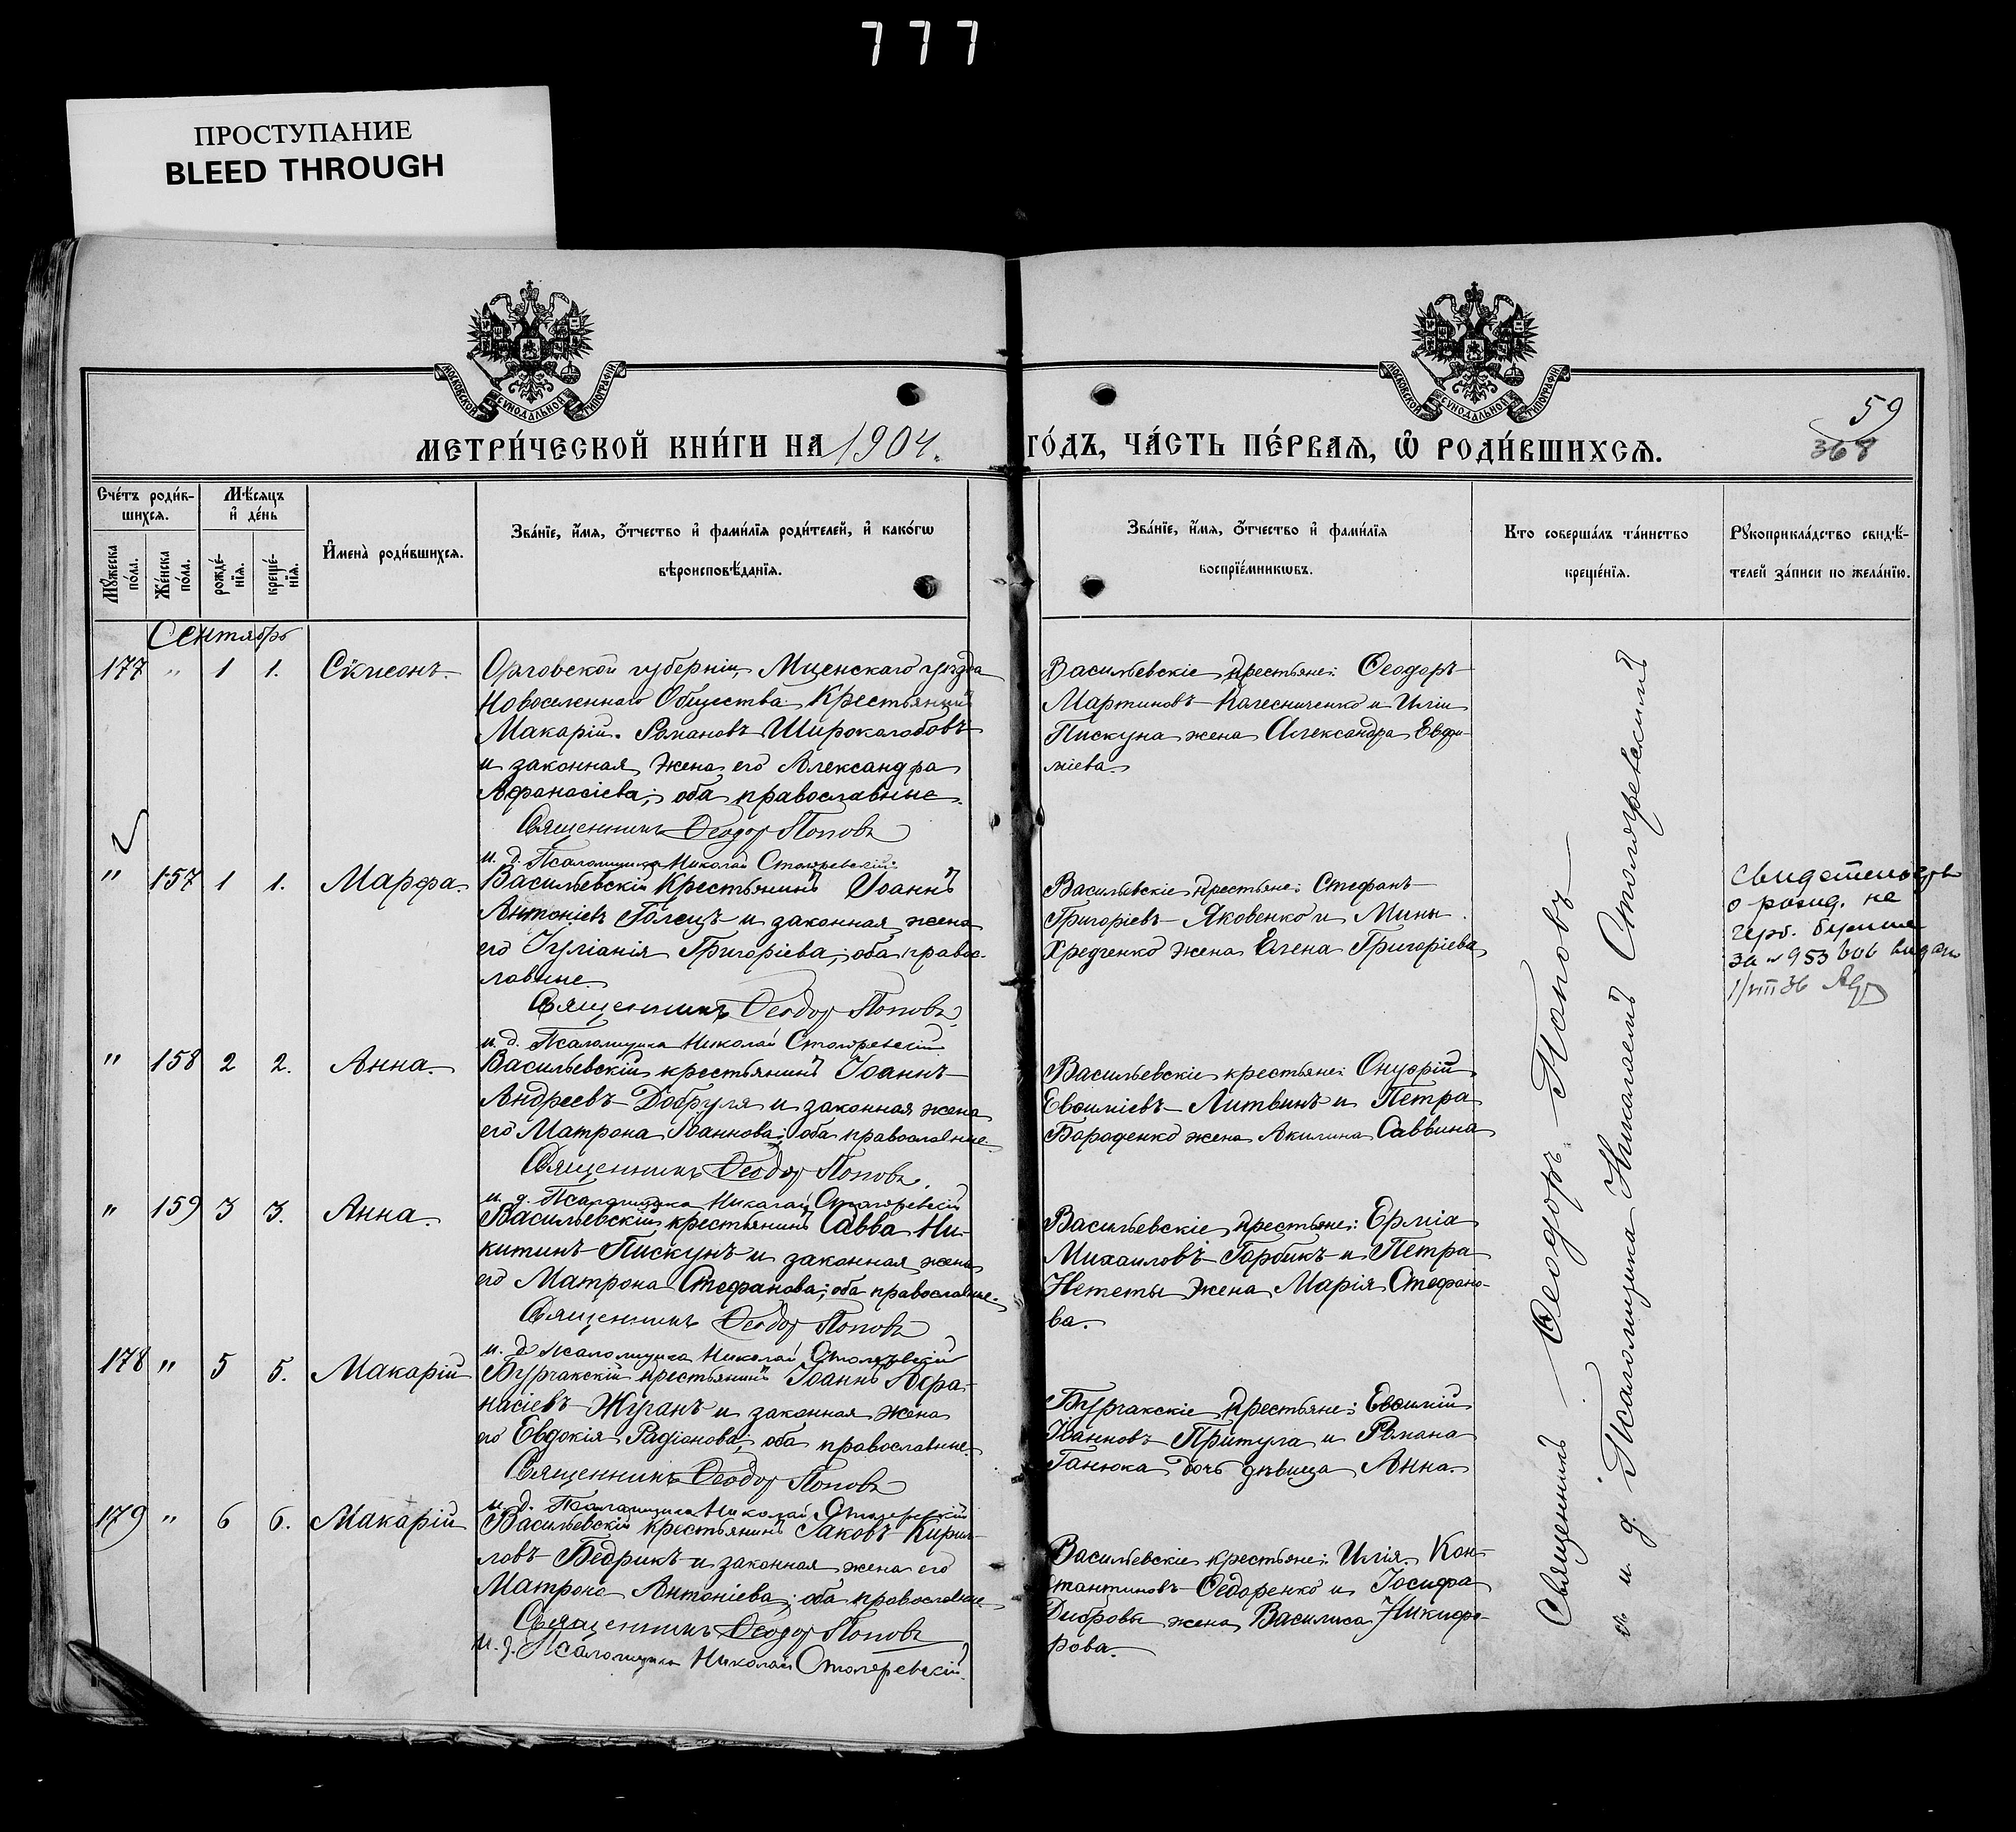 777
ПРОСТУПАНИЕ
BLEED THROUGH
МОСКОВСКОЙ СУНОДАЛЬНОЙ ТИПОГРАФІИ
МОСКОВСКОЙ СУНОДАЛЬНОЙ ТИПОГРАФІИ
59
368
МЕТРИ́ЧЕСКОЙ КНИ́ГИ НА 1904. ГО́ДЪ, ЧА́СТЬ ПЕ́РВАѦ, Ѡ РОДИ́ВШИХСѦ.
Счетъ роди́вшихсѧ.
Мѣсяцъ и день
Мꙋжеска по́ла.
Же́нска по́ла.
рожде́нїѧ.
креще́нїѧ.
И҆мена̀ роди́вшихсѧ.
Зва́нїе, и҆́мѧ, ѻ҆́тчество и҆ фами́лїѧ роди́телей, и҆ како́гѡ
вѣроисповѣ́данїѧ.
Зва́нїе, и҆́мѧ, ѻ҆́тчество и҆ фами́лїѧ
воспрїе́мникѡвъ.
Кто соверша́лъ та́инство
креще́нїѧ.
Рꙋкоприкла́дство свидѣ́-
телей за́писи по жела́нїю.
Сентябрь
177 " 1 1.
Орловской губерніи, Мценскаго уѣзда
Новоселеннаго Общества Крестьянинъ
Макарій Романовъ Широкалобовъ
и законная жена его Александра
Афанасіева; оба православные.
Священникъ Ѳеодоръ Поповъ
и. д. Псаломщика Николай
Васильевскіе крестьяне: Ѳеодоръ
Мартиновъ Колесниченко и Иліи
Пискуна жена Александра Евфи-
міева.
" 157 1 1. Марфа.
Васильевскій Крестьянинъ Іоаннъ
Антоніевъ Голецъ и законная жена
его Іуліанія Григоріева; оба правос-
лавные.
Священникъ Ѳеодоръ Поповъ.
и. д. Псаломщика Николай
Васильевскіе крестьяне: Стефанъ
Григоріевъ Яковенко и Мины
жена Елена Григоріева
Свидетельство
о рожд. на
герб. бумаге
за № 953 выдано
" 158 2 2. Анна.
Васильевскій крестьянинъ Іоаннъ
Андреевъ Добруля и законная жена
его Матрона Іоаннова; оба православные.
Священникъ Ѳеодоръ Поповъ.
и. д. Псаломщика Николай
Васильевскіе крестьяне: Онуфрій
Евѳиміевъ Литвинъ и Петра
Бороденко жена Акилина Саввина
" 159 3 3. Анна.
Васильевскій крестьянинъ Савва Ни-
китинъ Пискунъ и законная жена
его Матрона Стефанова; оба православные.
Священникъ Ѳеодоръ Поповъ
и. д. Псаломщика Николай
Васильевскіе крестьяне: Ермiа
Михаиловъ Горбикъ и Петра
Нететы жена Марія Стефано-
ва.
178 " 5 5. Макарій
Бурчакскій крестьянинъ Іоаннъ Афа-
насіевъ Журанъ и законная жена
его Евдокія Радіонова; оба православные.
Священникъ Ѳеодоръ Поповъ
и. д. Псаломщика Николай
Бурчакскіе крестьяне: Евѳимій
Іоанновъ Притула и Романа
Ганюка дочь дѣвица Анна.
179 " 6 6. Макарій
Васильевскій крестьянинъ Іаковъ Кирил-
ловъ Бедрикъ и законная жена его
Матрона Антоніева; оба православные
Священникъ Ѳеодоръ Поповъ
и. д. Псаломщика Николай
Васильевскіе крестьяне: Илія Кон-
стантиновъ Ѳедоренко и Іосифа
Дибровы жена Василиса Никифо-
рова.
Священникъ Ѳеодоръ Поповъ
и. д. Псаломщика Николай